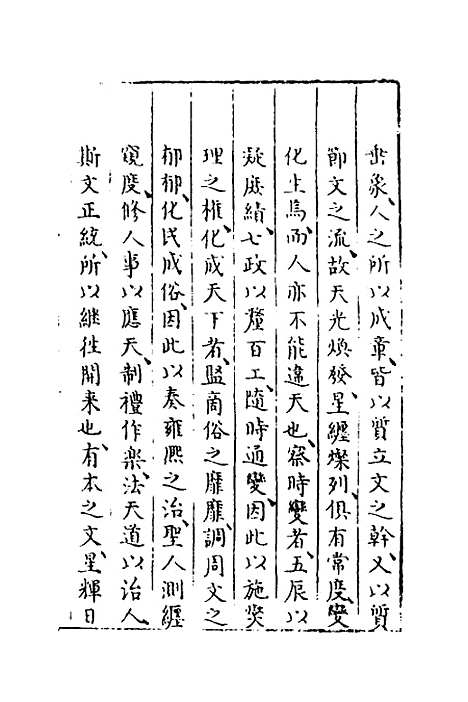 垂象、人之所以成章、皆以質立文之幹、又以質
節文之流、故天光煥發、星纏燦列、俱有常度、變
化上焉、而人亦不能違天也、察時變者、五辰以
凝庶績、七政以釐百工、隨時通變、因此以施奕
理之權、化成天下者、監商俗之靡靡、調周文之
郁郁、化民成俗、因此以奏雍熙之治、聖人測纏
窺度、修人事以應天、制禮作樂、法天道以治人、
斯文正統、所以継往開来也、有本之文、星輝日